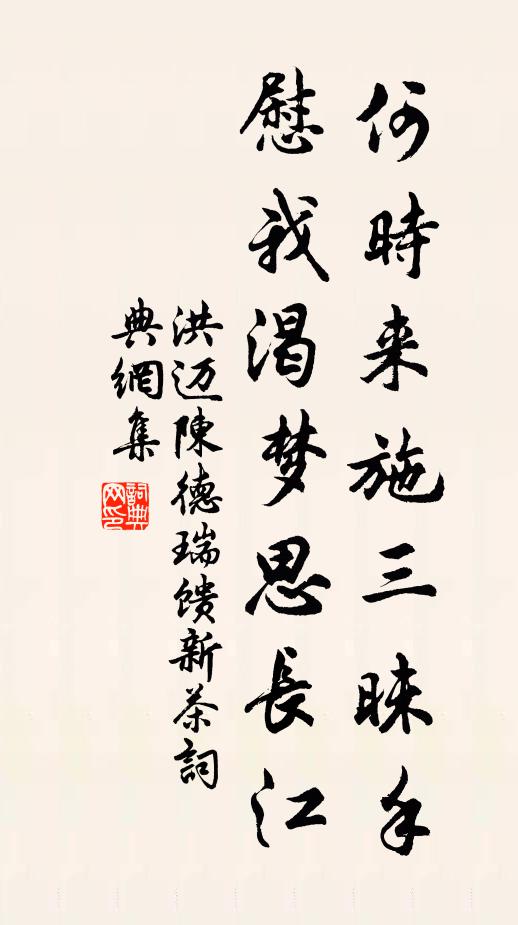 何時来施三昧手
慰我渴梦思長江
洪迈陳德瑞馈新茶詞
典網集
詞典网印